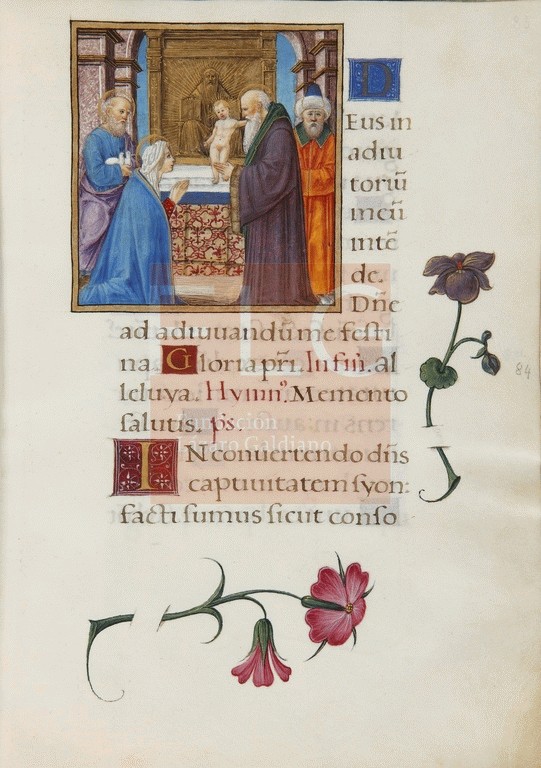 D
Eus in
adiu
toriū
meū
intē
de.
Dn̄e
ad adiuuandū me festi
na. Gloria pr̄i. In fin̄. al
leluya. Hymnꝰ. Memento
salutis. p̄s.
IN conuertendo dn̄s
captiuitatem syon:
facti sumus sicut conso
84
FLG
Fundación
Lázaro Galdiano